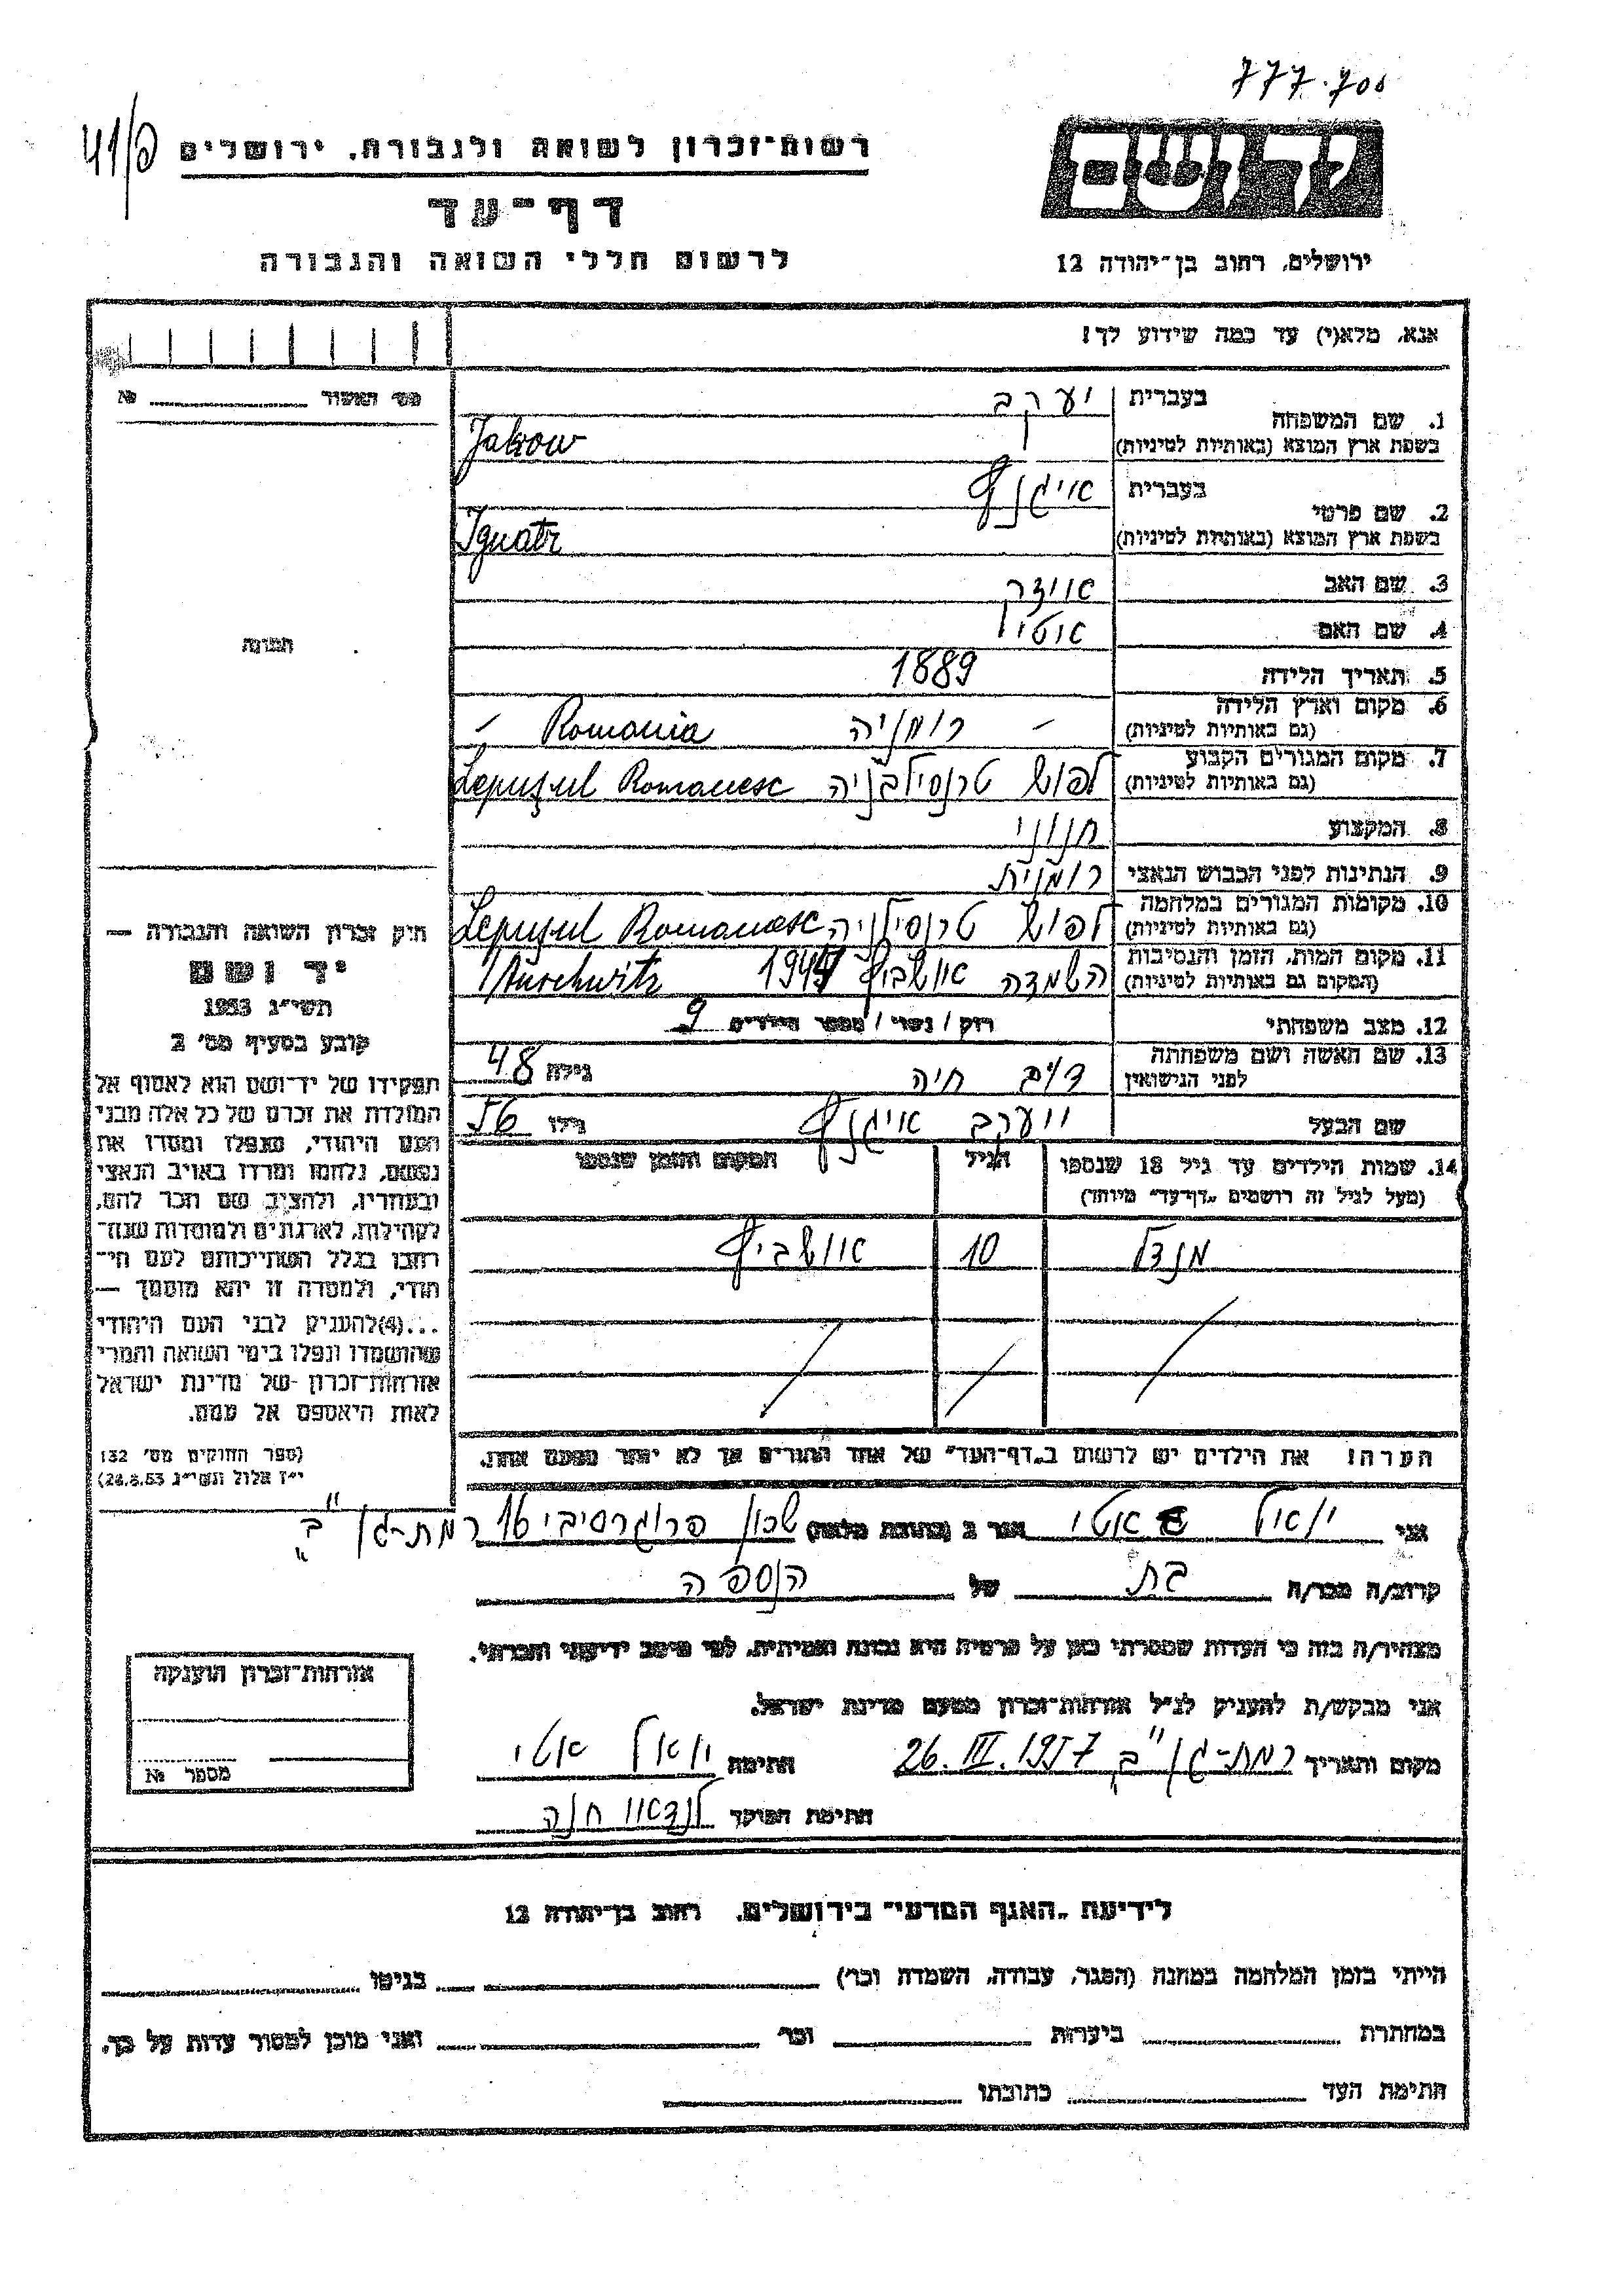 777.700
41/6
רשות־זכרון לשואה ולגבורה, ירושלים
דף־עד
לרשום חללי השואה והגבורה
יד ושם
ירושלים, רחוב בן־יהודה 12
אנא, מלא(י) עד כמה שידוע לך!
מס׳ האשור № 
תמונה
1. שם המשפחה
בעברית יעקב
בשפת ארץ המוצא (באותיות לטיניות) Jakow
2. שם פרטי
בעברית איגנץ
בשפת ארץ המוצא (באותיות לטיניות) Ignatz
3. שם האב
4. שם האם
5. תאריך הלידה 1889
6. מקום וארץ הלידה
(גם באותיות לטיניות) – רומניה Romania –
7. מקום המגורים הקבוע
(גם באותיות לטיניות) לפוש טרנסילבניה Lepuşul Romanesc
8. המקצוע חנוני
9. הנתינות לפני הכבוש הנאצי רומנית
10. מקומות המגורים במלחמה
(גם באותיות לטיניות) לפוש טרנסילניה Lepuşul Romanesc
11. מקום המות, הזמן והנסיבות
(המקום גם באותיות לטיניות) השמדה אושביץ 1944 Auschwitz
12. מצב משפחתי רוק / נשוי / מספר הילדים 9
13. שם האשה ושם משפחתה
לפני הנישואין חיה גילה 48
שם הבעל יעקב איגנץ גילו 56
14. שמות הילדים עד גיל 18 שנספו
(מעל לגיל זה רושמים „דף־עד״ מיוחד)
הגיל
המקום והזמן שנספו
מנדל 10 אושביץ
הערה: את הילדים יש לרשום ב„דף־העד״ של אחד ההורים אך לא יותר מפעם אחת.
חוק זכרון השואה והגבורה —
יד ושם
תשי״ג 1953
קובע בסעיף מס׳ 2
תפקידו של יד־ושם הוא לאסוף אל
המולדת את זכרם של כל אלה מבני
העם היהודי, שנפלו ומסרו את
נפשם, נלחמו ומרדו באויב הנאצי
ובעוזריו, ולהציב שם וזכר להם,
לקהילות, לארגונים ולמוסדות שנח־
רבו בגלל השתייכותם לעם הי־
הודי, ולמטרה זו יהא מוסמך —
...(4)להעניק לבני העם היהודי
שהושמדו ונפלו בימי השואה והמרי
אזרחות־זכרון של מדינת ישראל
לאות היאספם אל עמם.
(ספר החוקים מס׳ 132
י״ז אלול תשי״ג 28.8.53)
אני יואל אטי הגר ב (כתובת מלאה) שכון פרוגרסיבי 16 רמת-גן "ב"
קרוב/ה מכר/ה בת של הנספה
מצהיר/ה בזה כי העדות שמסרתי כאן על פרטיה היא נכונה ואמיתית, לפי מיטב ידיעתי והכרתי.
אני מבקש/ת להעניק לנ״ל אזרחות־זכרון מטעם מדינת ישראל.
מקום ותאריך רמת-גן "ב 26.III.1957 חתימה יואל אטי
חתימת הפוקד לנדאו חנה
אזרחות־זכרון הוענקה
מספר №
לידיעת „האגף המדעי״ בירושלים, רחוב בן־יהודה 12
הייתי בזמן המלחמה במחנה (הסגר, עבודה, השמדה וכו׳) בגיטו
במחתרת ביערות וכו׳ ואני מוכן למסור עדות על כך.
חתימת העד כתובתו